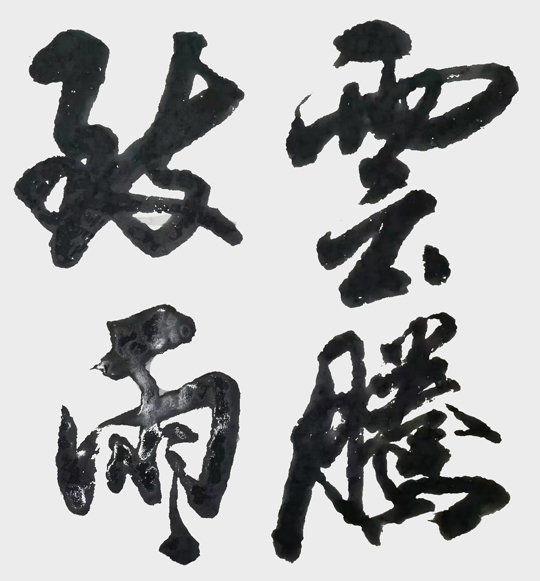 雲騰
致雨